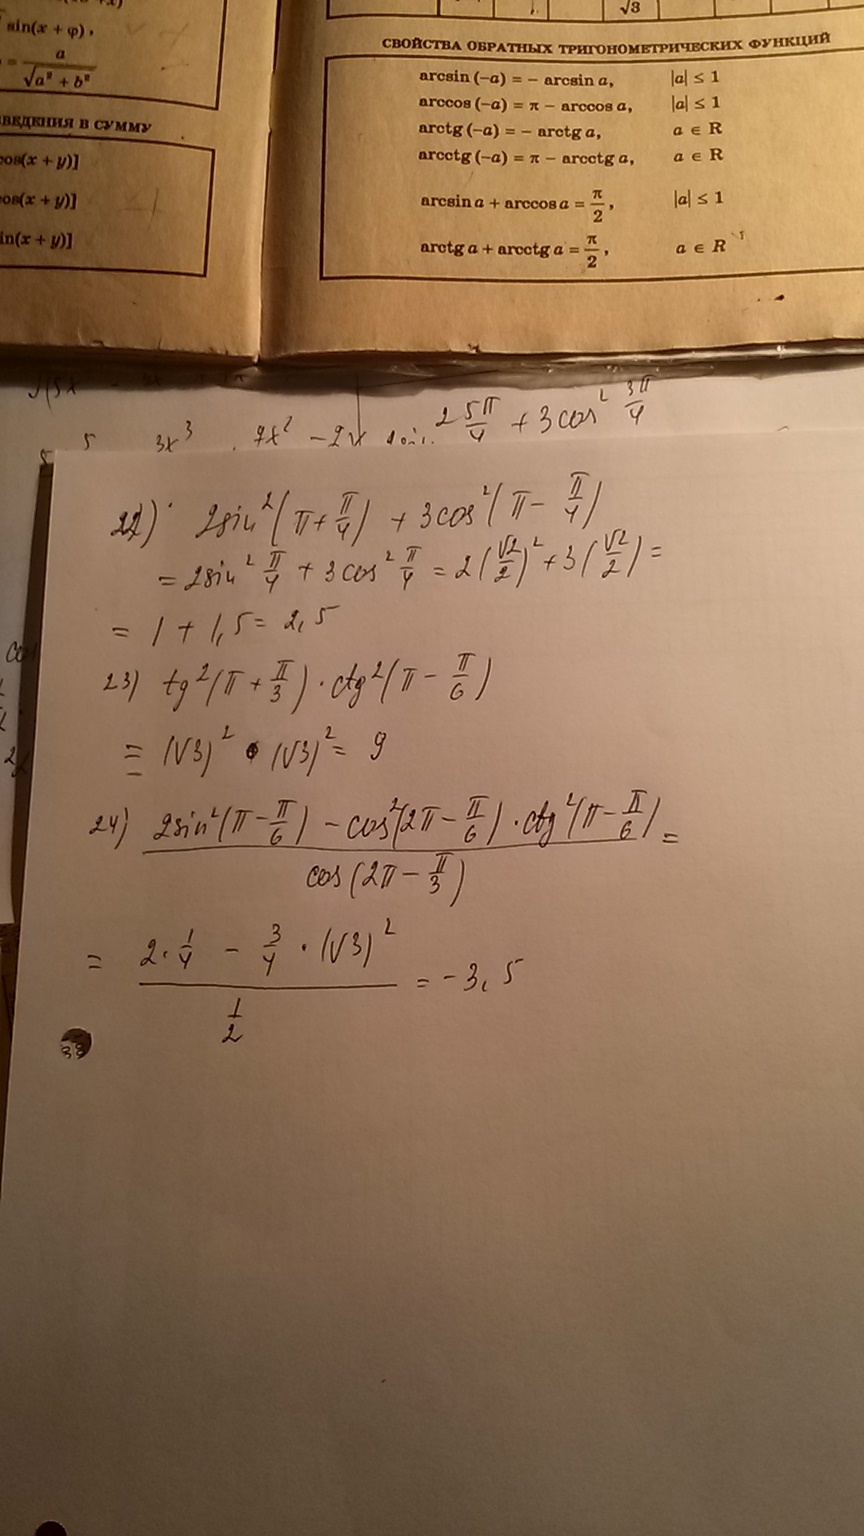 sin(x + φ),
= a/√(a² + b²)
ВЕДЕНИЯ В СУММУ
cos(x + y)]
cos(x + y)]
in(x + y)]
√3
СВОЙСТВА ОБРАТНЫХ ТРИГОНОМЕТРИЧЕСКИХ ФУНКЦИЙ
arcsin (−a) = − arcsin a, |a| ≤ 1
arccos (−a) = π − arccos a, |a| ≤ 1
arctg (−a) = − arctg a, a ∈ R
arcctg (−a) = π − arcctg a, a ∈ R
arcsin a + arccos a = π/2, |a| ≤ 1
arctg a + arcctg a = π/2, a ∈ R
2 5π/4 + 3cos² 3π/4
3x³ 7x² − 2x
22) 2sin²(π + π/4) + 3cos²(π − π/4)
= 2sin² π/4 + 3cos² π/4 = 2(√2/2)² + 3(√2/2) =
= 1 + 1,5 = 2,5
23) tg²(π + π/3) · ctg²(π − π/6)
= (√3)² · (√3)² = 9
24) 2sin²(π − π/6) − cos²(2π − π/6) · ctg²(π − π/6) / cos(2π − π/3) =
= 2 · 1/4 − 3/4 · (√3)² / 1/2 = −3,5